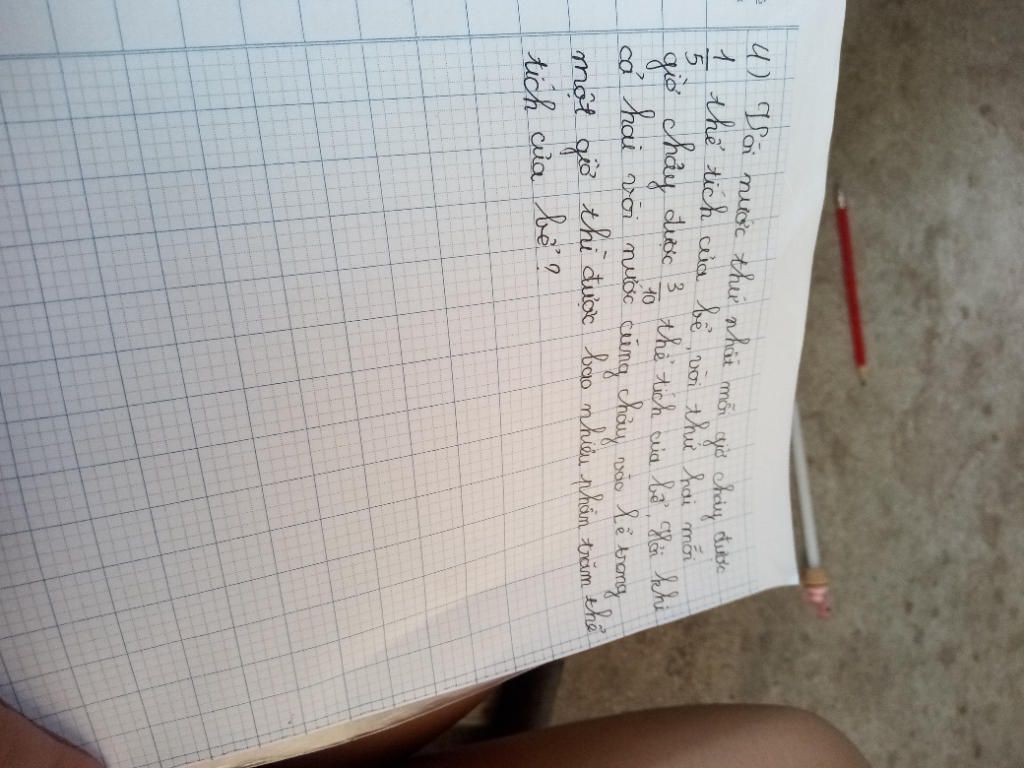 4) Vòi nước thứ nhất mỗi giờ chảy được
1/5 thể tích của bể, vòi thứ hai mỗi
giờ chảy được 3/10 thể tích của bể. Hỏi khi
cả hai vòi nước cùng chảy vào bể trong
một giờ thì được bao nhiêu phần trăm thể
tích của bể?